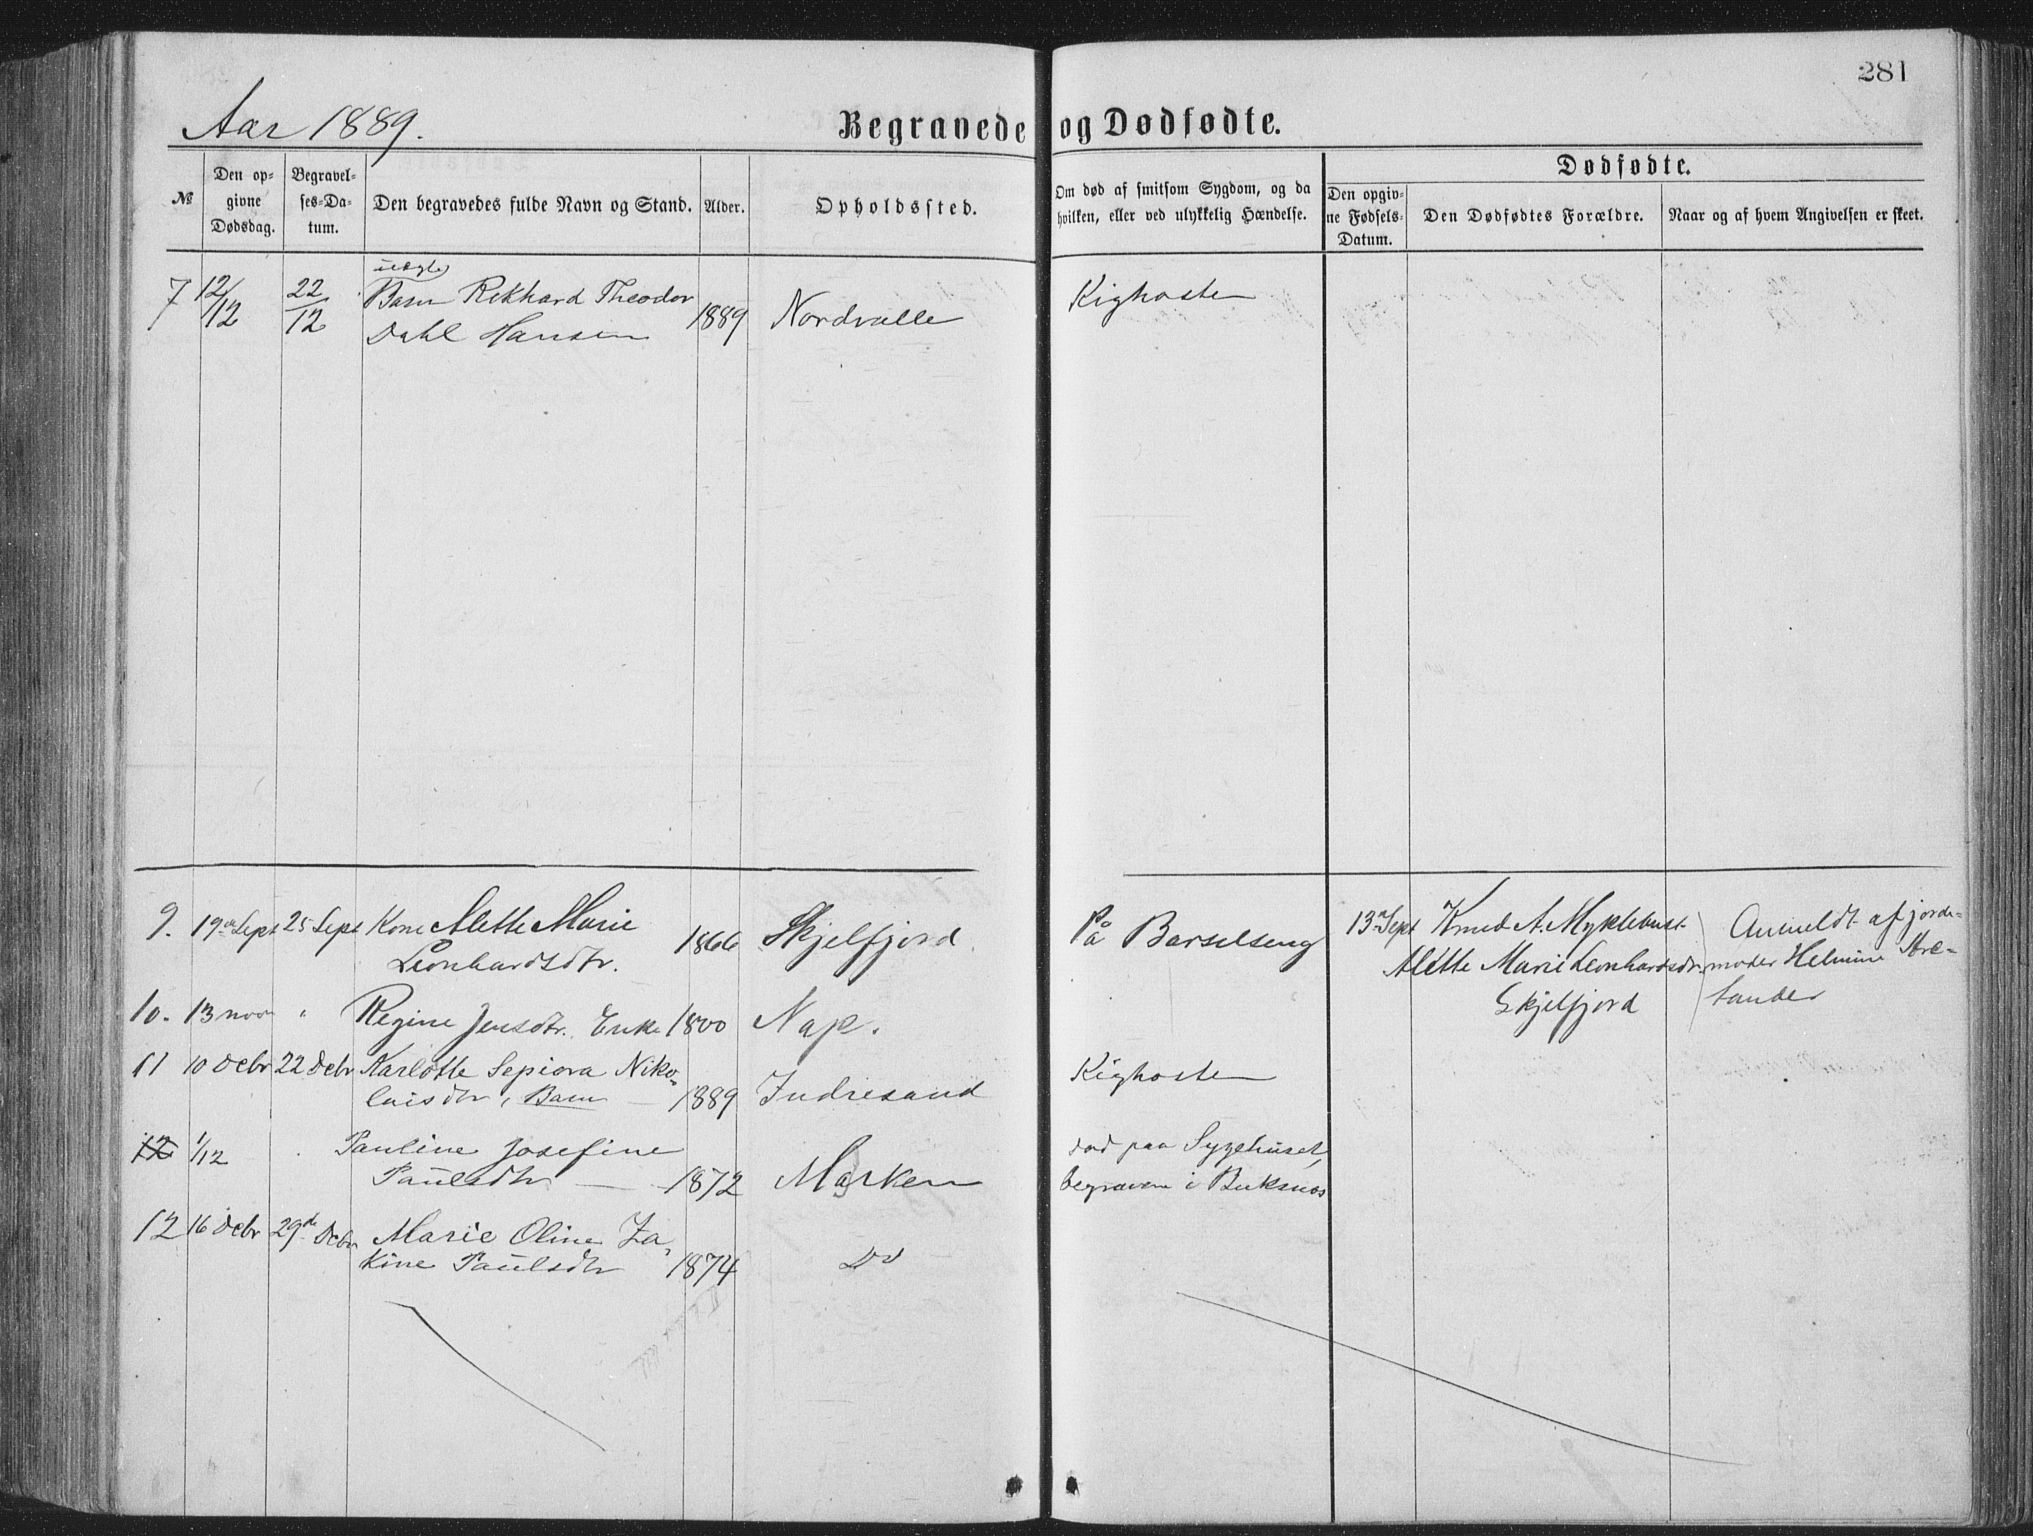 281
Aar 1889.
Begravede og Dødfødte.
Dødfødte.
№
Den op-
givne
Dødsdag.
Begravel-
ses-Da-
tum.
Den begravedes fulde Navn og Stand.
Alder.
Opholdssted.
Om død af smitsom Sygdom, og da
hvilken, eller ved ulykkelig Hændelse.
Den opgiv-
ne Fødsels-
Datum.
Den Dødfødtes Forældre.
Naar og af hvem Angivelsen er skeet.
uægte
7 12/12 22/12 Barn Rikhard Theodor
Dahl Hansen 1889 Nordvalle Kighosten
9. 19de Sept 25 Sept Kone Alette Marie
Leonhardsdtr. 1866 Skjelfjord På Barselseng
13de Sept Knud A. Myklebust
Alette Marie Leonhardsdr.
Skjelfjord
Anmeldt af jorde-
moder Helmine Stre-
10. 13 nov " Regine Jensdtr. Enke 1800 Nap.
11 10 Debr 22 Debr Karlotte Sepiora Niko-
laisdtr, Barn — 1889 Indresand Kighosten
12 1/12 Pauline Josefine
Paulsdtr — 1872 Marken
død paa Sygehuset,
begraven i Buksnes
12 16 Debr 29de Debr Marie Oline Za-
kine Paulsdtr 1874 Do